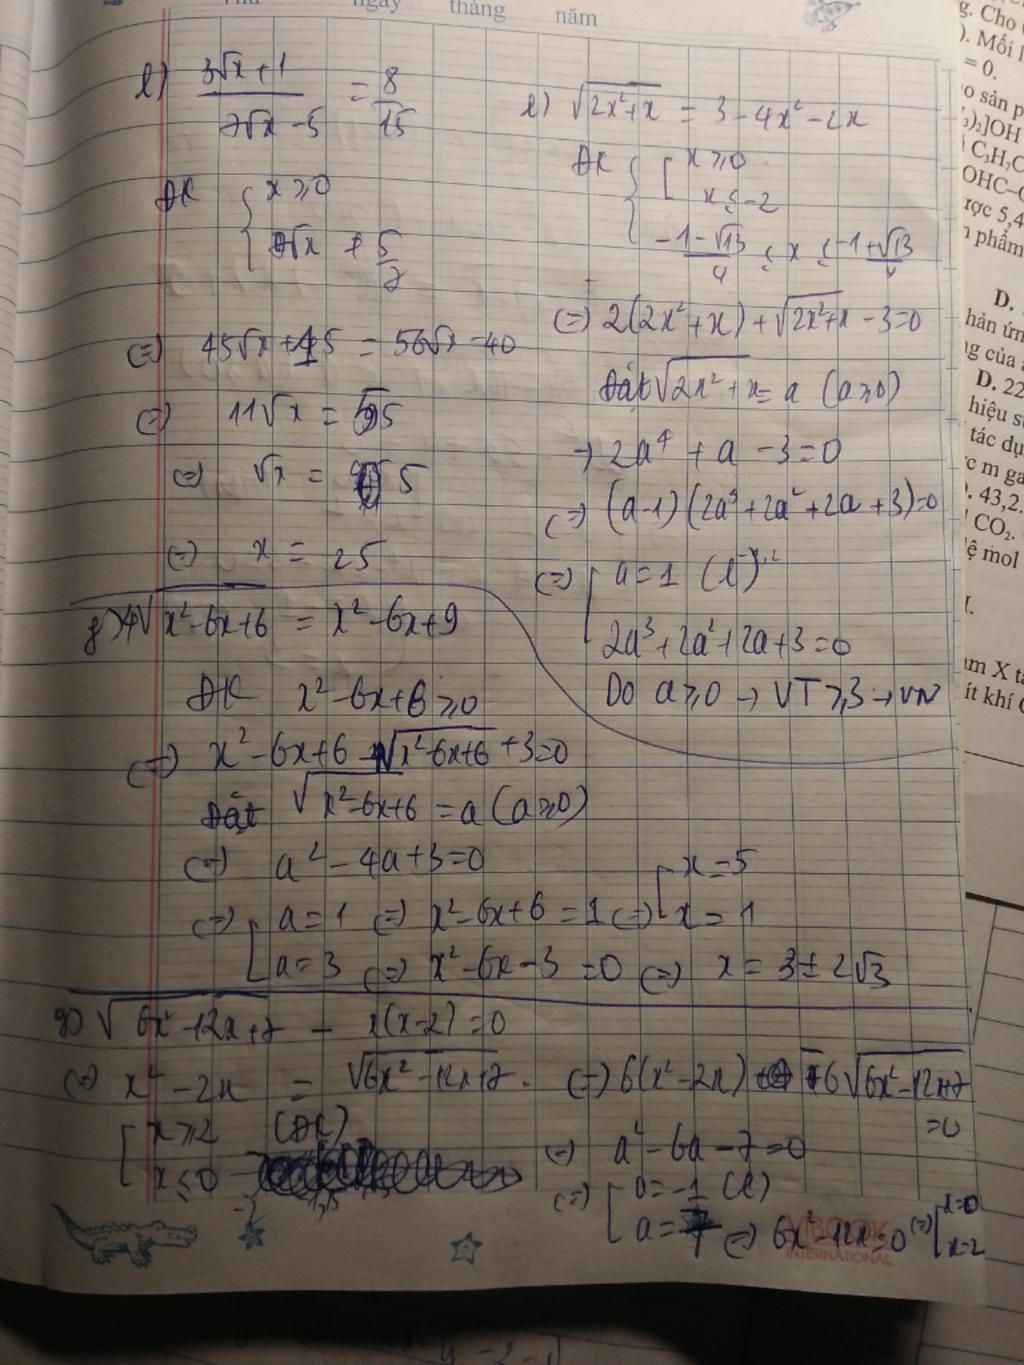 ngày tháng năm
l) (3√x + 1)/(7√x - 5) = 8/15
ĐK { x ≥ 0
√x ≠ 5/7
(=) 45√x + 15 = 56√x - 40
(=) 11√x = 55
(=) √x = 5
(=) x = 25
l) √(2x²+x) = 3 - 4x² - 2x
ĐK { [ x ≥ 0
x ≤ -2
(-1-√13)/4 ≤ x ≤ (-1+√13)/4
(=) 2(2x²+x) + √(2x²+x) - 3 = 0
Đặt √(2x²+x) = a (a ≥ 0)
→ 2a⁴ + a - 3 = 0
(=) (a-1)(2a³+2a²+2a+3) = 0
(=) [ a = 1 (l)
2a³+2a²+2a+3 = 0
Do a ≥ 0 → VT ≥ 3 → VN
f) 4√(x²-6x+6) = x²-6x+9
ĐK x²-6x+6 ≥ 0
(=) x²-6x+6 - 4√(x²-6x+6) + 3 = 0
Đặt √(x²-6x+6) = a (a ≥ 0)
(=) a² - 4a + 3 = 0
(=) [ a = 1 (=) x²-6x+6 = 1 (=) [ x = 5
x = 1
a = 3 (=) x²-6x-3 = 0 (=) x = 3 ± 2√3
g) √(6x²-12x+7) - x(x-2) = 0
(=) x² - 2x = √(6x²-12x+7)
[ x ≥ 2 (ĐK)
x ≤ 0
(=) 6(x²-2x) - 6√(6x²-12x+7) = 0
(=) a² - 6a - 7 = 0
(=) [ a = -1 (l)
a = 7 (=) 6x²-12x = 0 (=) [ x = 0
x = 2
VIBOOK
INTERNATIONAL
g. Cho
). Mối l
= 0.
o sản p
)₂]OH
C₃H₇C
OHC–C
rợc 5,4
n phẩm
D.
hản ứn
g của
D. 22
hiệu s
tác dụ
c m ga
43,2.
CO₂.
ệ mol
am X t
ít khí